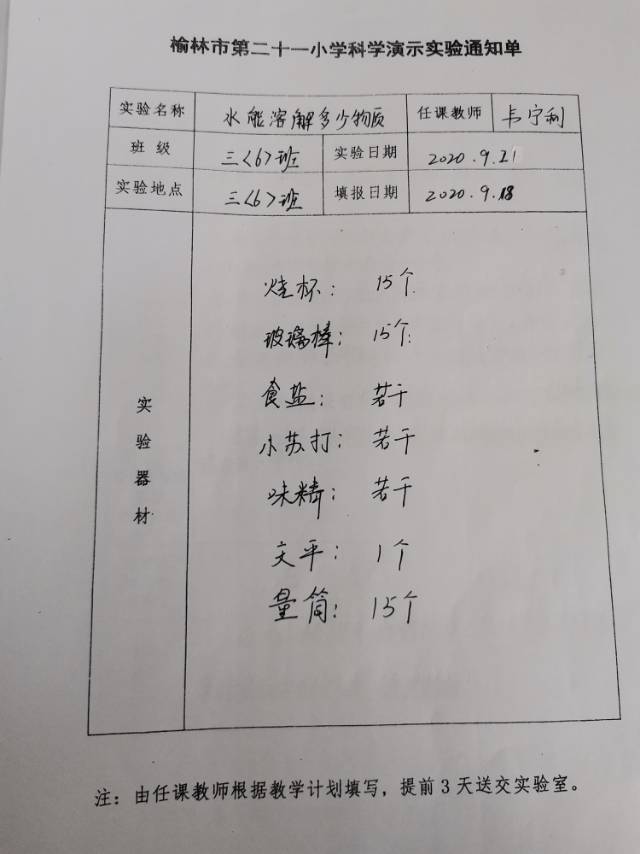 榆林市第二十一小学科学演示实验通知单
实验名称 水能溶解多少物质 任课教师 宁利
班级 三<6>班 实验日期 2020.9.21
实验地点 三<6>班 填报日期 2020.9.18
实验器材
烧杯： 15个
玻璃棒： 15个
食盐： 若干
小苏打： 若干
味精： 若干
天平： 1个
量筒： 15个
注：由任课教师根据教学计划填写，提前3天送交实验室。